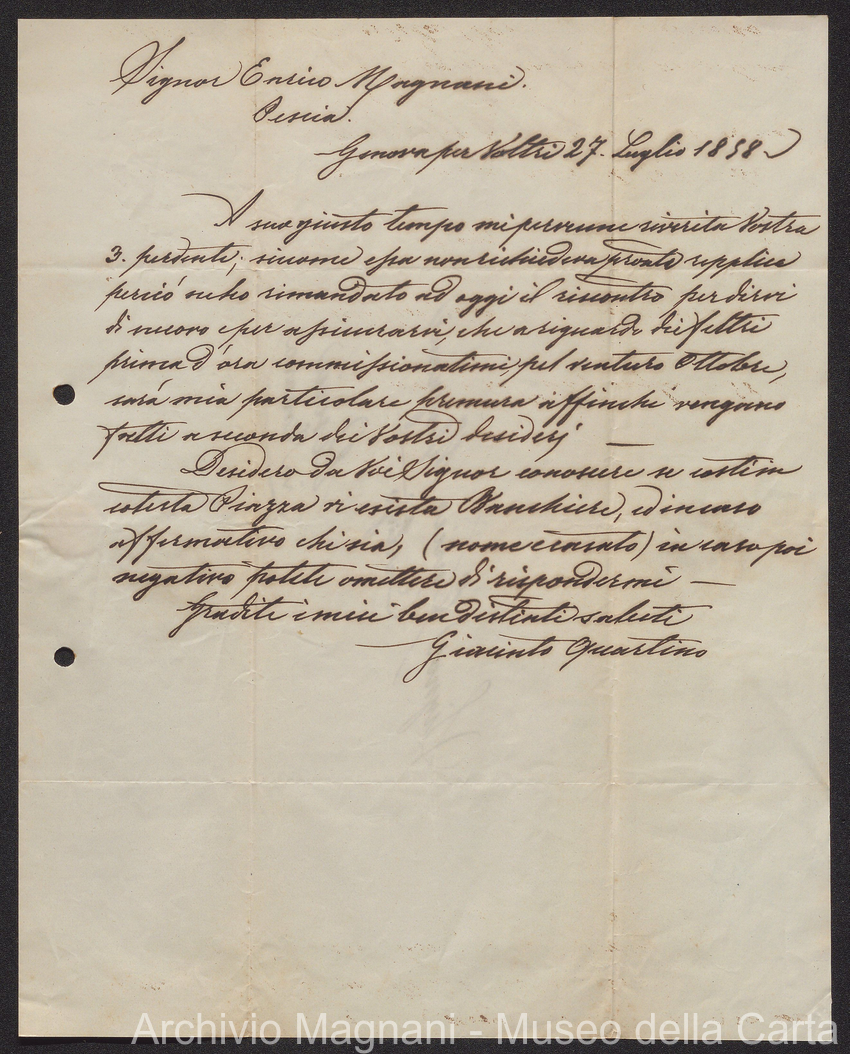 Signor Enrico Magnani.
Pescia.
Genova per Voltri 27. Luglio 1858
A suo giusto tempo mi pervenne riverita Vostra
3. perdente; siccome essa non richiedeva pronta repplica
perciò ne ho rimandato ad oggi il riscontro per dirvi
di nuovo e per assicurarvi, che a riguardo dei feltri
prima d'ora commissionatimi pel venturo Ottobre,
sarà mia particolare premura affinchè vengano
fatti a seconda dei Vostri desiderj —
Desidero da Voi Signor conoscere se costì in
cotesta Piazza vi esista Banchiere, ed in caso
affermativo chi sia, (nome e casato) in caso poi
negativo potete omettere di rispondermi —
Gradite i miei ben distinti saluti
Giacinto Quartino
Archivio Magnani - Museo della Carta